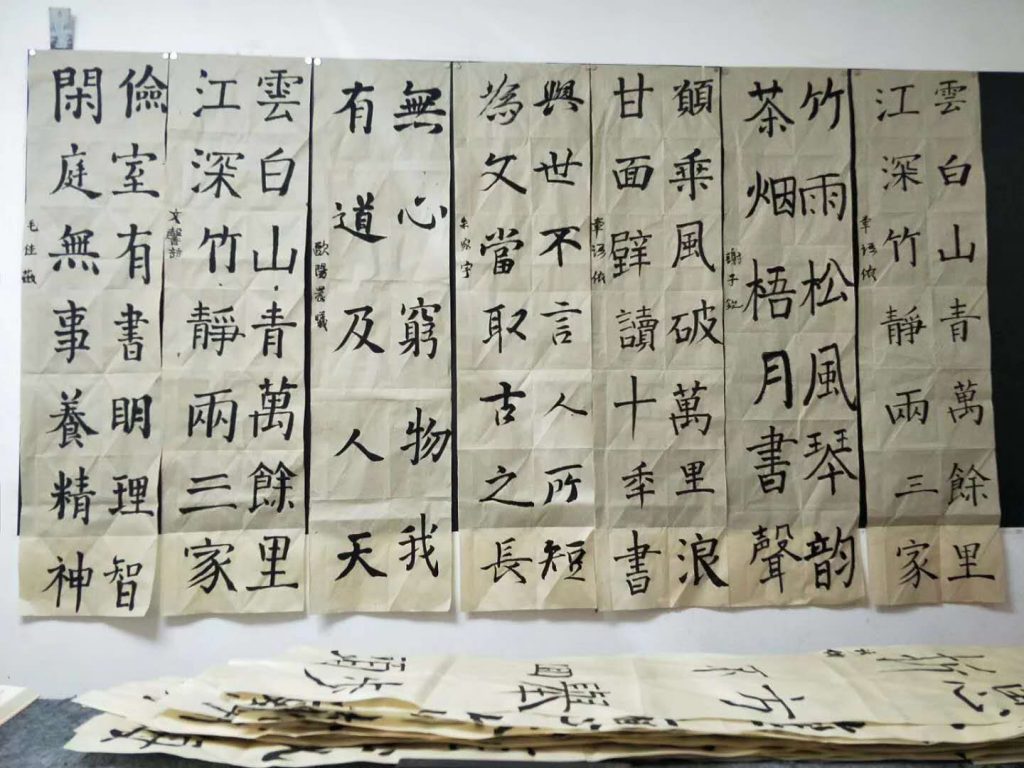 雲白山青萬餘里
江深竹靜兩三家
竹雨松風琴韵
茶烟梧月書聲
謝子
願乘風破萬里浪
甘面壁讀十秊書
與世不言人所短
為文當取古之長
無心窮物我
有道及人天
歐陽晨曦
雲白山青萬餘里
江深竹靜兩三家
文馨韵
儉室有書明理智
閑庭無事養精神
毛佳薇